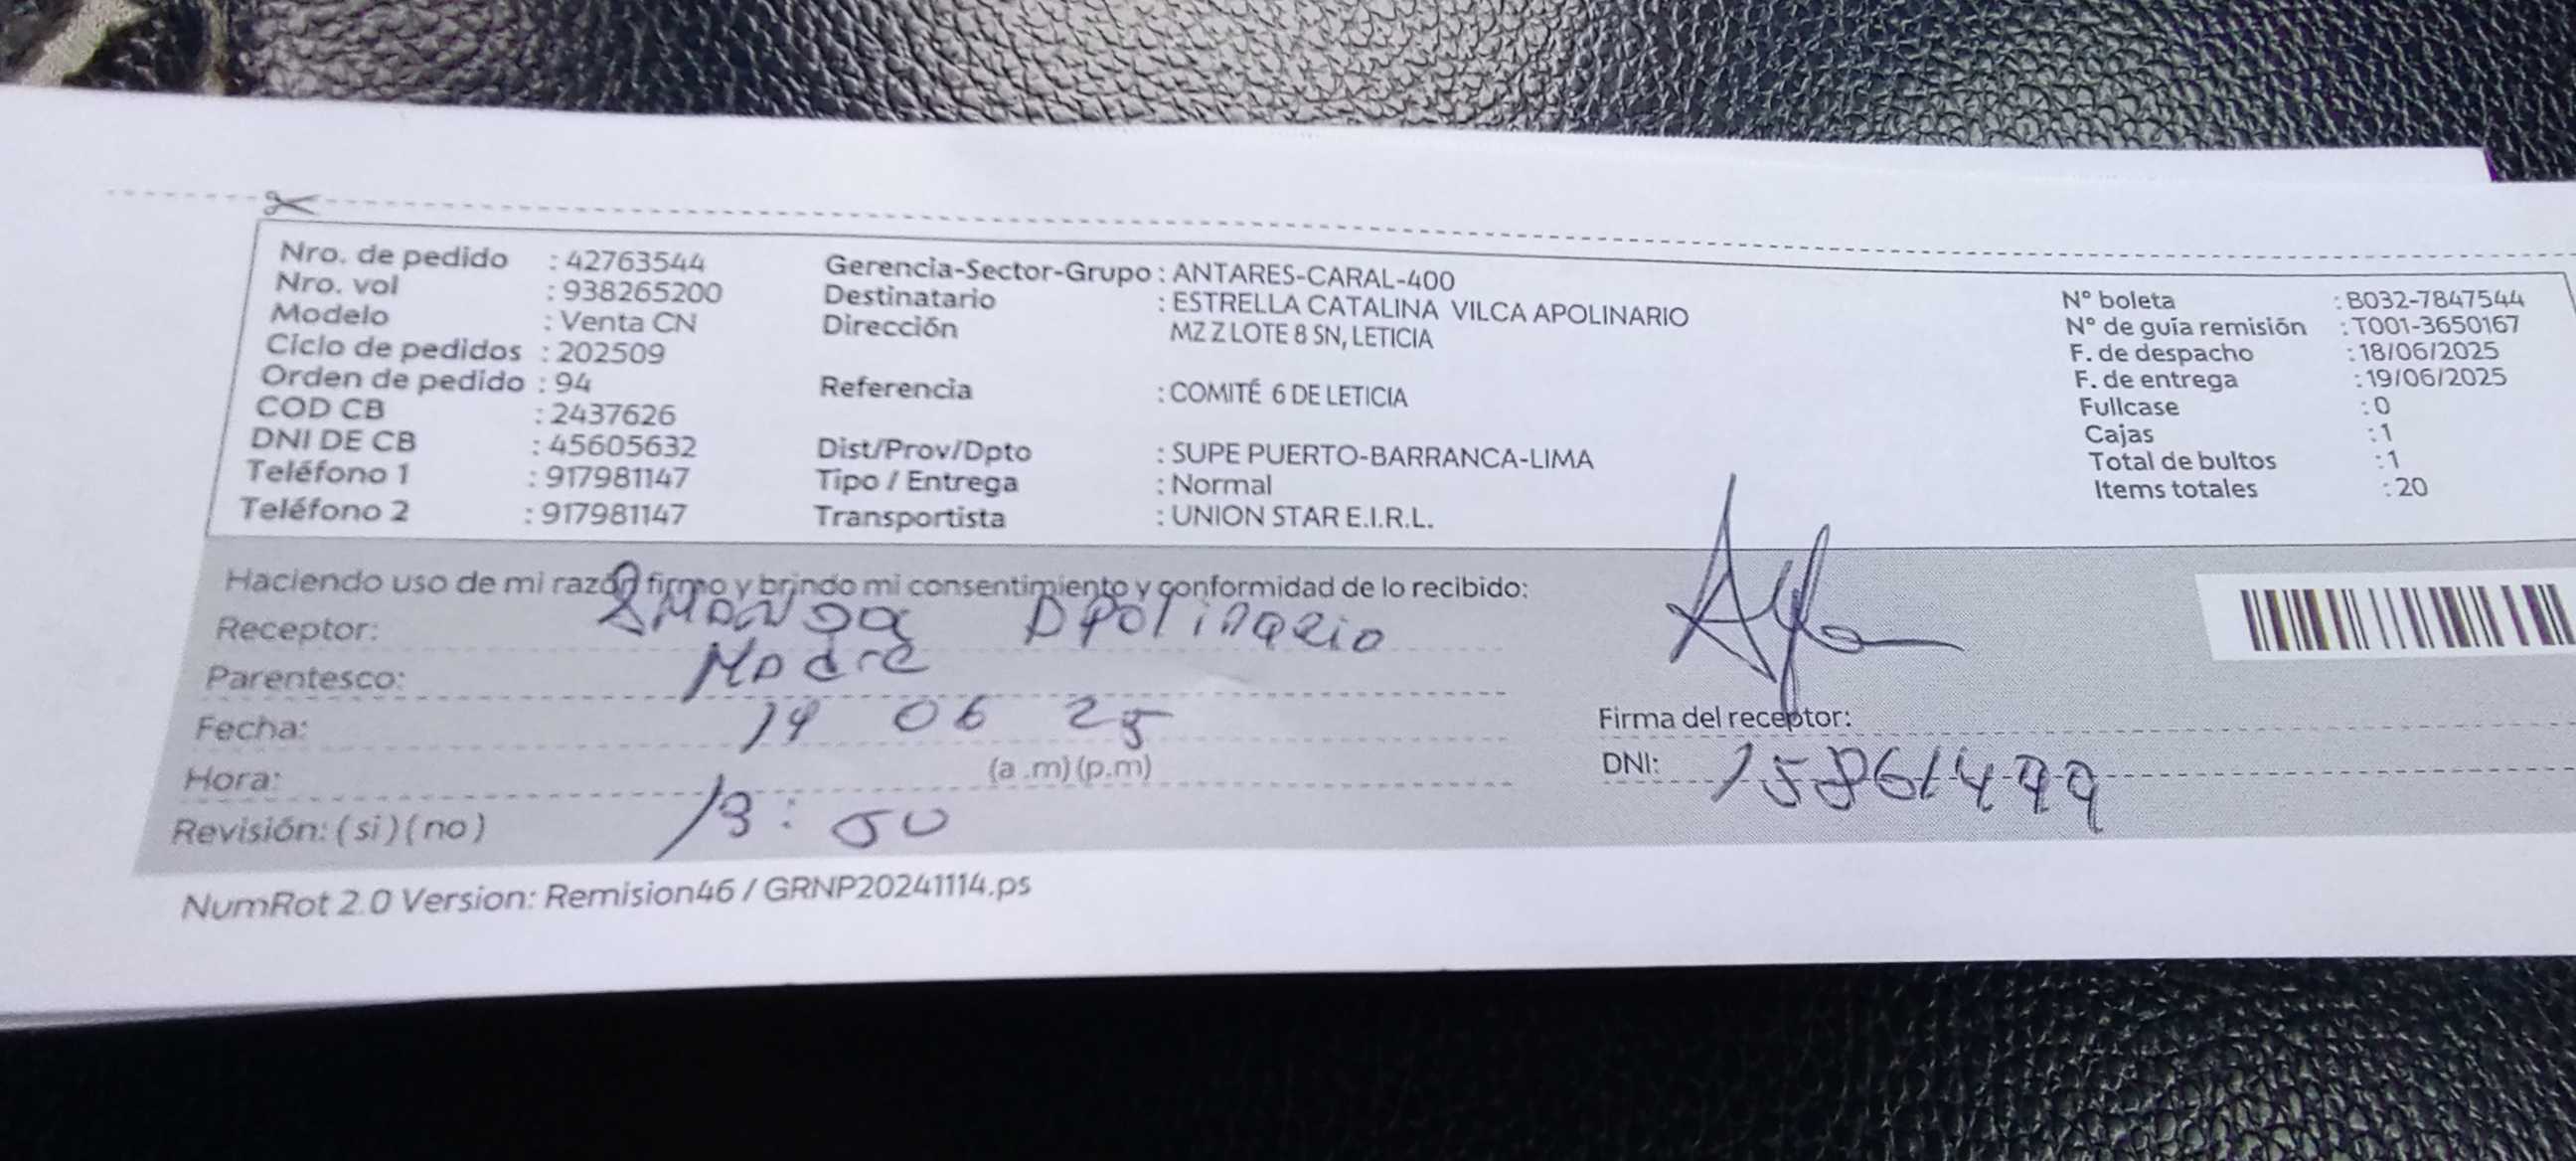 Nro. de pedido : 42763544
Nro. vol : 938265200
Modelo : Venta CN
Ciclo de pedidos : 202509
Orden de pedido : 94
COD CB : 2437626
DNI DE CB : 45605632
Teléfono 1 : 917981147
Teléfono 2 : 917981147
Gerencia-Sector-Grupo : ANTARES-CARAL-400
Destinatario : ESTRELLA CATALINA VILCA APOLINARIO
Dirección MZ Z LOTE 8 SN, LETICIA
Referencia : COMITÉ 6 DE LETICIA
Dist/Prov/Dpto : SUPE PUERTO-BARRANCA-LIMA
Tipo / Entrega : Normal
Transportista : UNION STAR E.I.R.L.
N° boleta : B032-7847544
N° de guía remisión : T001-3650167
F. de despacho : 18/06/2025
F. de entrega : 19/06/2025
Fullcase : 0
Cajas : 1
Total de bultos : 1
Items totales : 20
Haciendo uso de mi razón firmo y brindo mi consentimiento y conformidad de lo recibido:
Receptor: Apolinario
Parentesco: Madre
Fecha: 19 06 25
Hora: (a .m) (p.m)
13:50
Revisión: ( si ) ( no )
Firma del receptor:
DNI: 15861499
NumRot 2.0 Version: Remision46 / GRNP20241114.ps